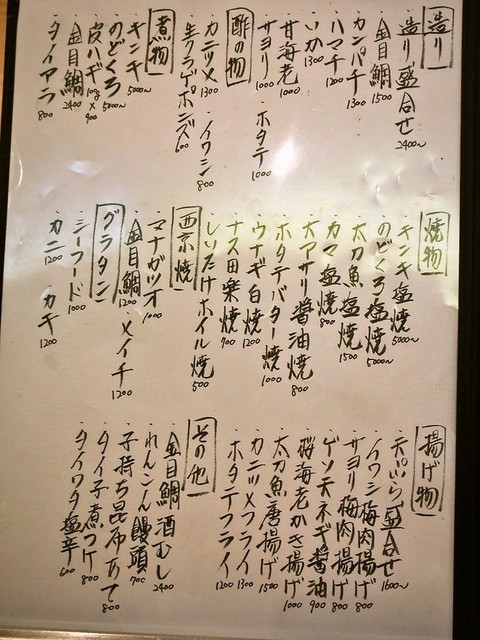 造り
・造り盛合せ 2400〜
・金目鯛 1500
・カンパチ 1300
・ハマチ 1200
・いか 1300
・甘海老 1000
・サヨリ 1000
・ホタテ 1000
酢の物
・カニツメ 1300
・イワシ 800
・生クラゲポンズ 600
煮物
・キンキ 5000〜
・のどくろ 5000〜
・皮ハギ 100g×900
・金目鯛 2400
・タイアラ 800
焼物
・キンキ塩焼 5000〜
・のどくろ塩焼 5000〜
・太刀魚塩焼 1500
・カマ塩焼 800
・大アサリ醤油焼 800
・ホタテバター焼 1000
・ウナギ白焼 1200
・ナス田楽焼 700
・しいたけホイル焼 500
西京焼
・マナガツオ 1000
・金目鯛 1200
・メイチ 1200
グラタン
・シーフード 1000
・カニ 1200
・カキ 1200
揚げ物
・天ぷら盛合せ 1600〜
・イワシ梅肉揚げ 800
・サヨリ梅肉揚げ 800
・ゲソ天ネギ醤油 900
・桜海老かき揚げ 1000
・太刀魚唐揚げ 1500
・カニツメフライ 1300
・ホタテフライ 1200
その他
・金目鯛酒むし 2400
・れんこん饅頭 700
・子持ち昆布あて 800
・タイ子煮つけ 800
・タイワタ塩辛 600